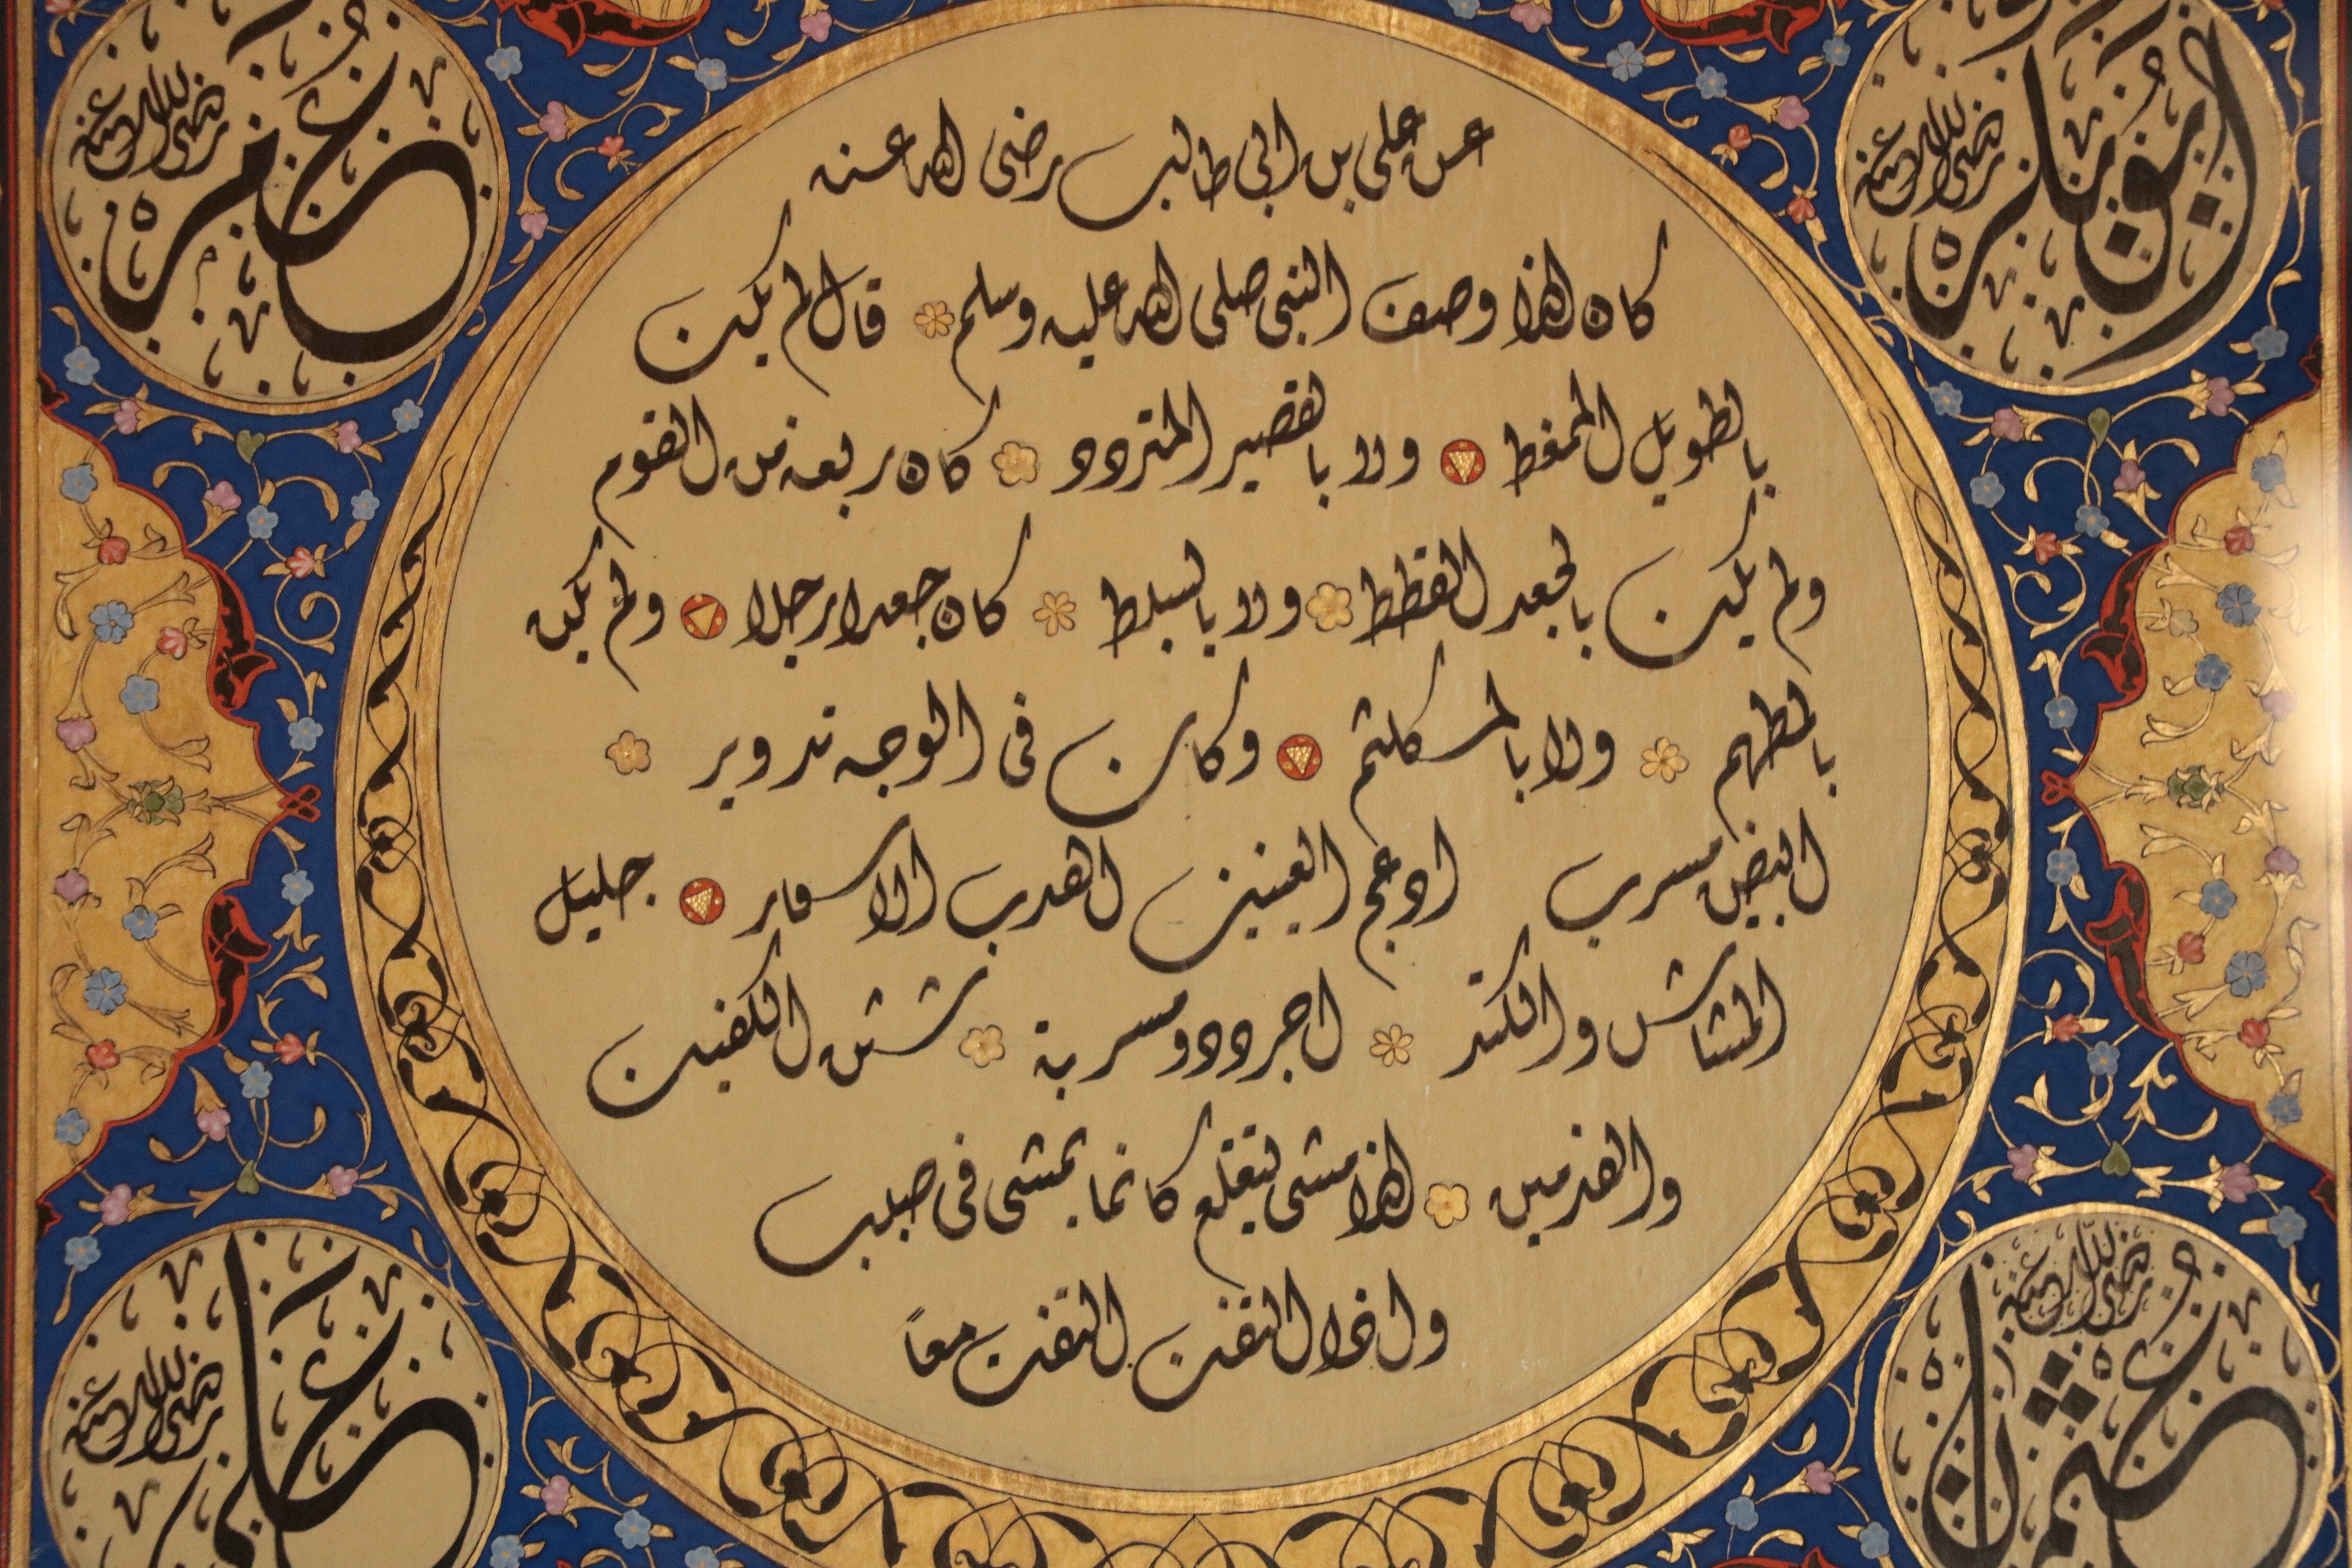 ابو بكر رضي الله عنه
عمر رضي الله عنه
عن علي بن ابي طالب رضى الله عنه
كان اذا وصف النبي صلى الله عليه وسلم قال لم يكن
بالطويل الممغط ولا بالقصير المتردد كان ربعه من القوم
ولم يكن بالجعد القطط ولا بالسبط كان جعدا رجلا ولم يكن
بالمطهم ولا بالمكلثم وكان في الوجه تدوير
ابيض مسرب ادعج العينين اهدب الاسفار جليل
المشاش والكتد اجرد ذو مسربة شثن الكفين
والقدمين اذا مشى يتقلع كانما يمشى فى صبب
واذا التفت التفت معاً
عثمان رضي الله عنه
علي رضي الله عنه